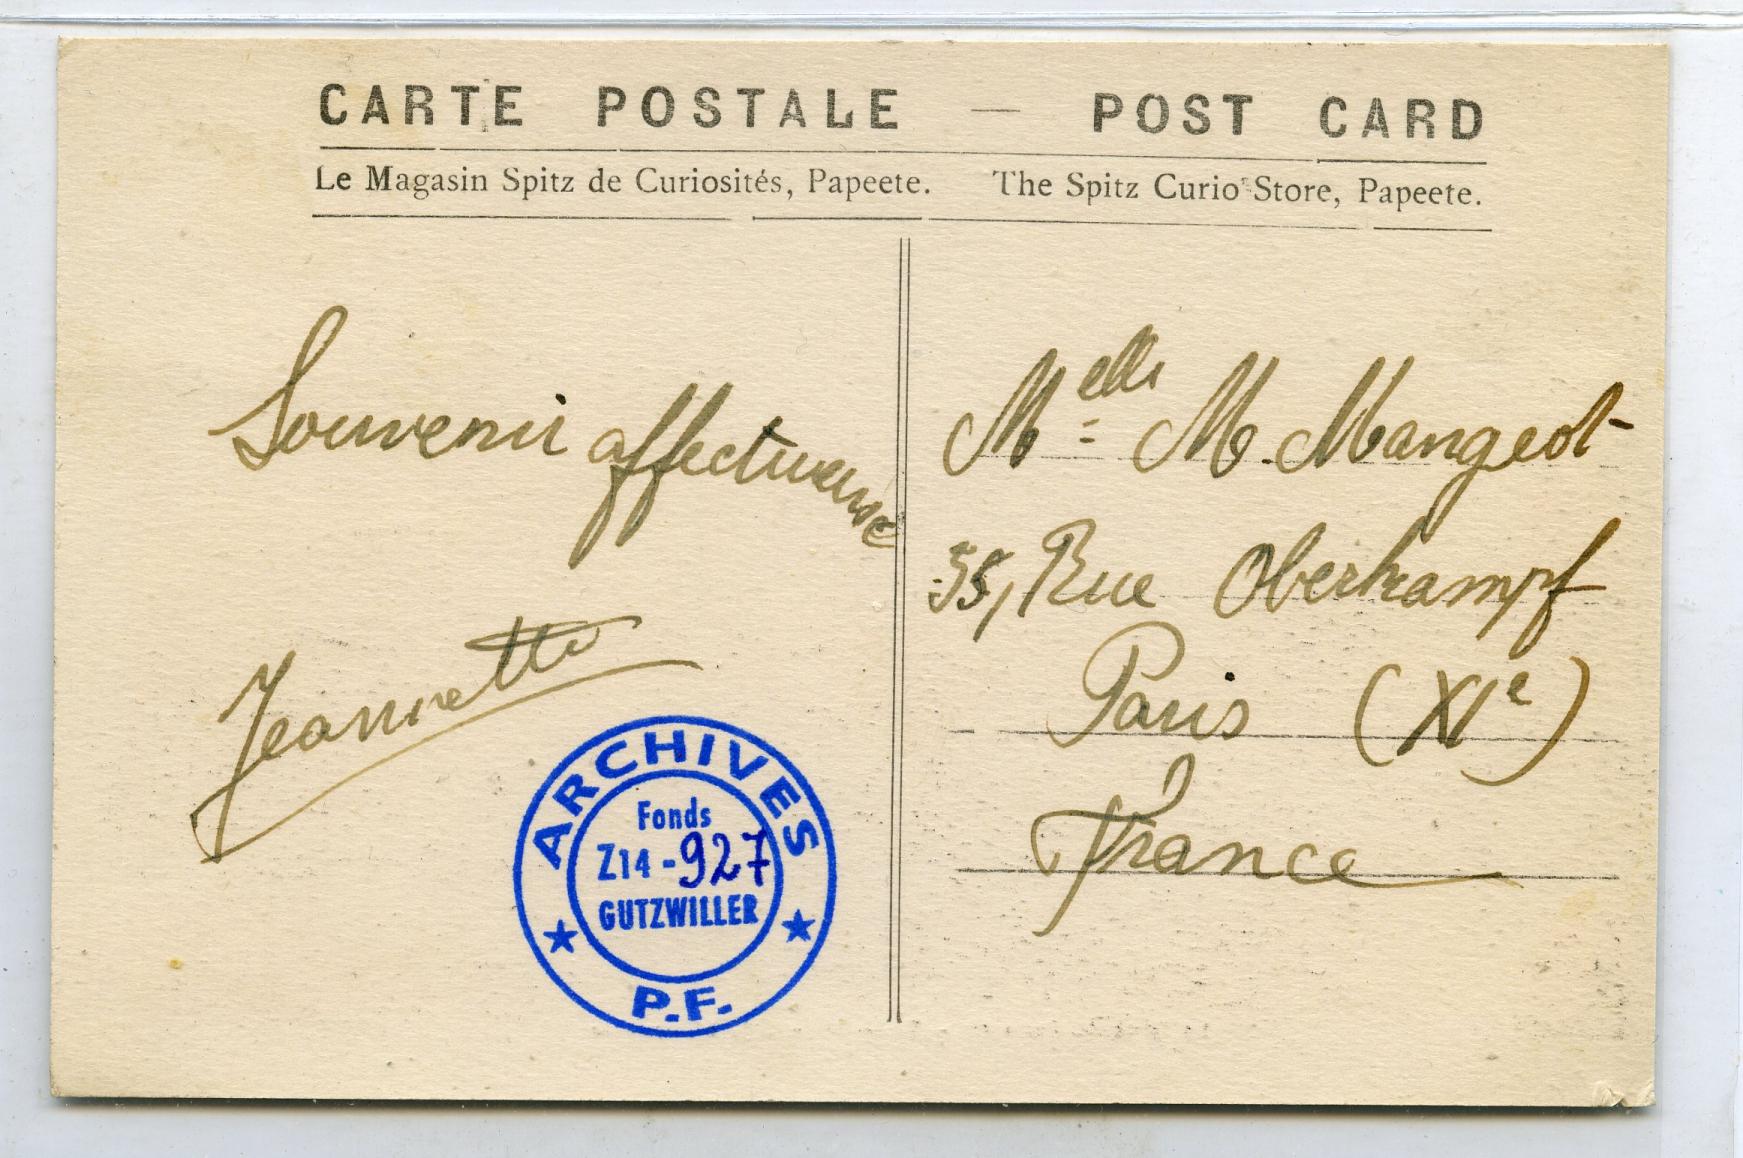 CARTE POSTALE — POST CARD
Le Magasin Spitz de Curiosités, Papeete. The Spitz Curio Store, Papeete.
Souvenir affectueuse
Jeannette
Melle M. Mangeot
35, Rue Oberkampf
Paris (XIe)
France
ARCHIVES
Fonds
Z14-927
GUTZWILLER
P.F.